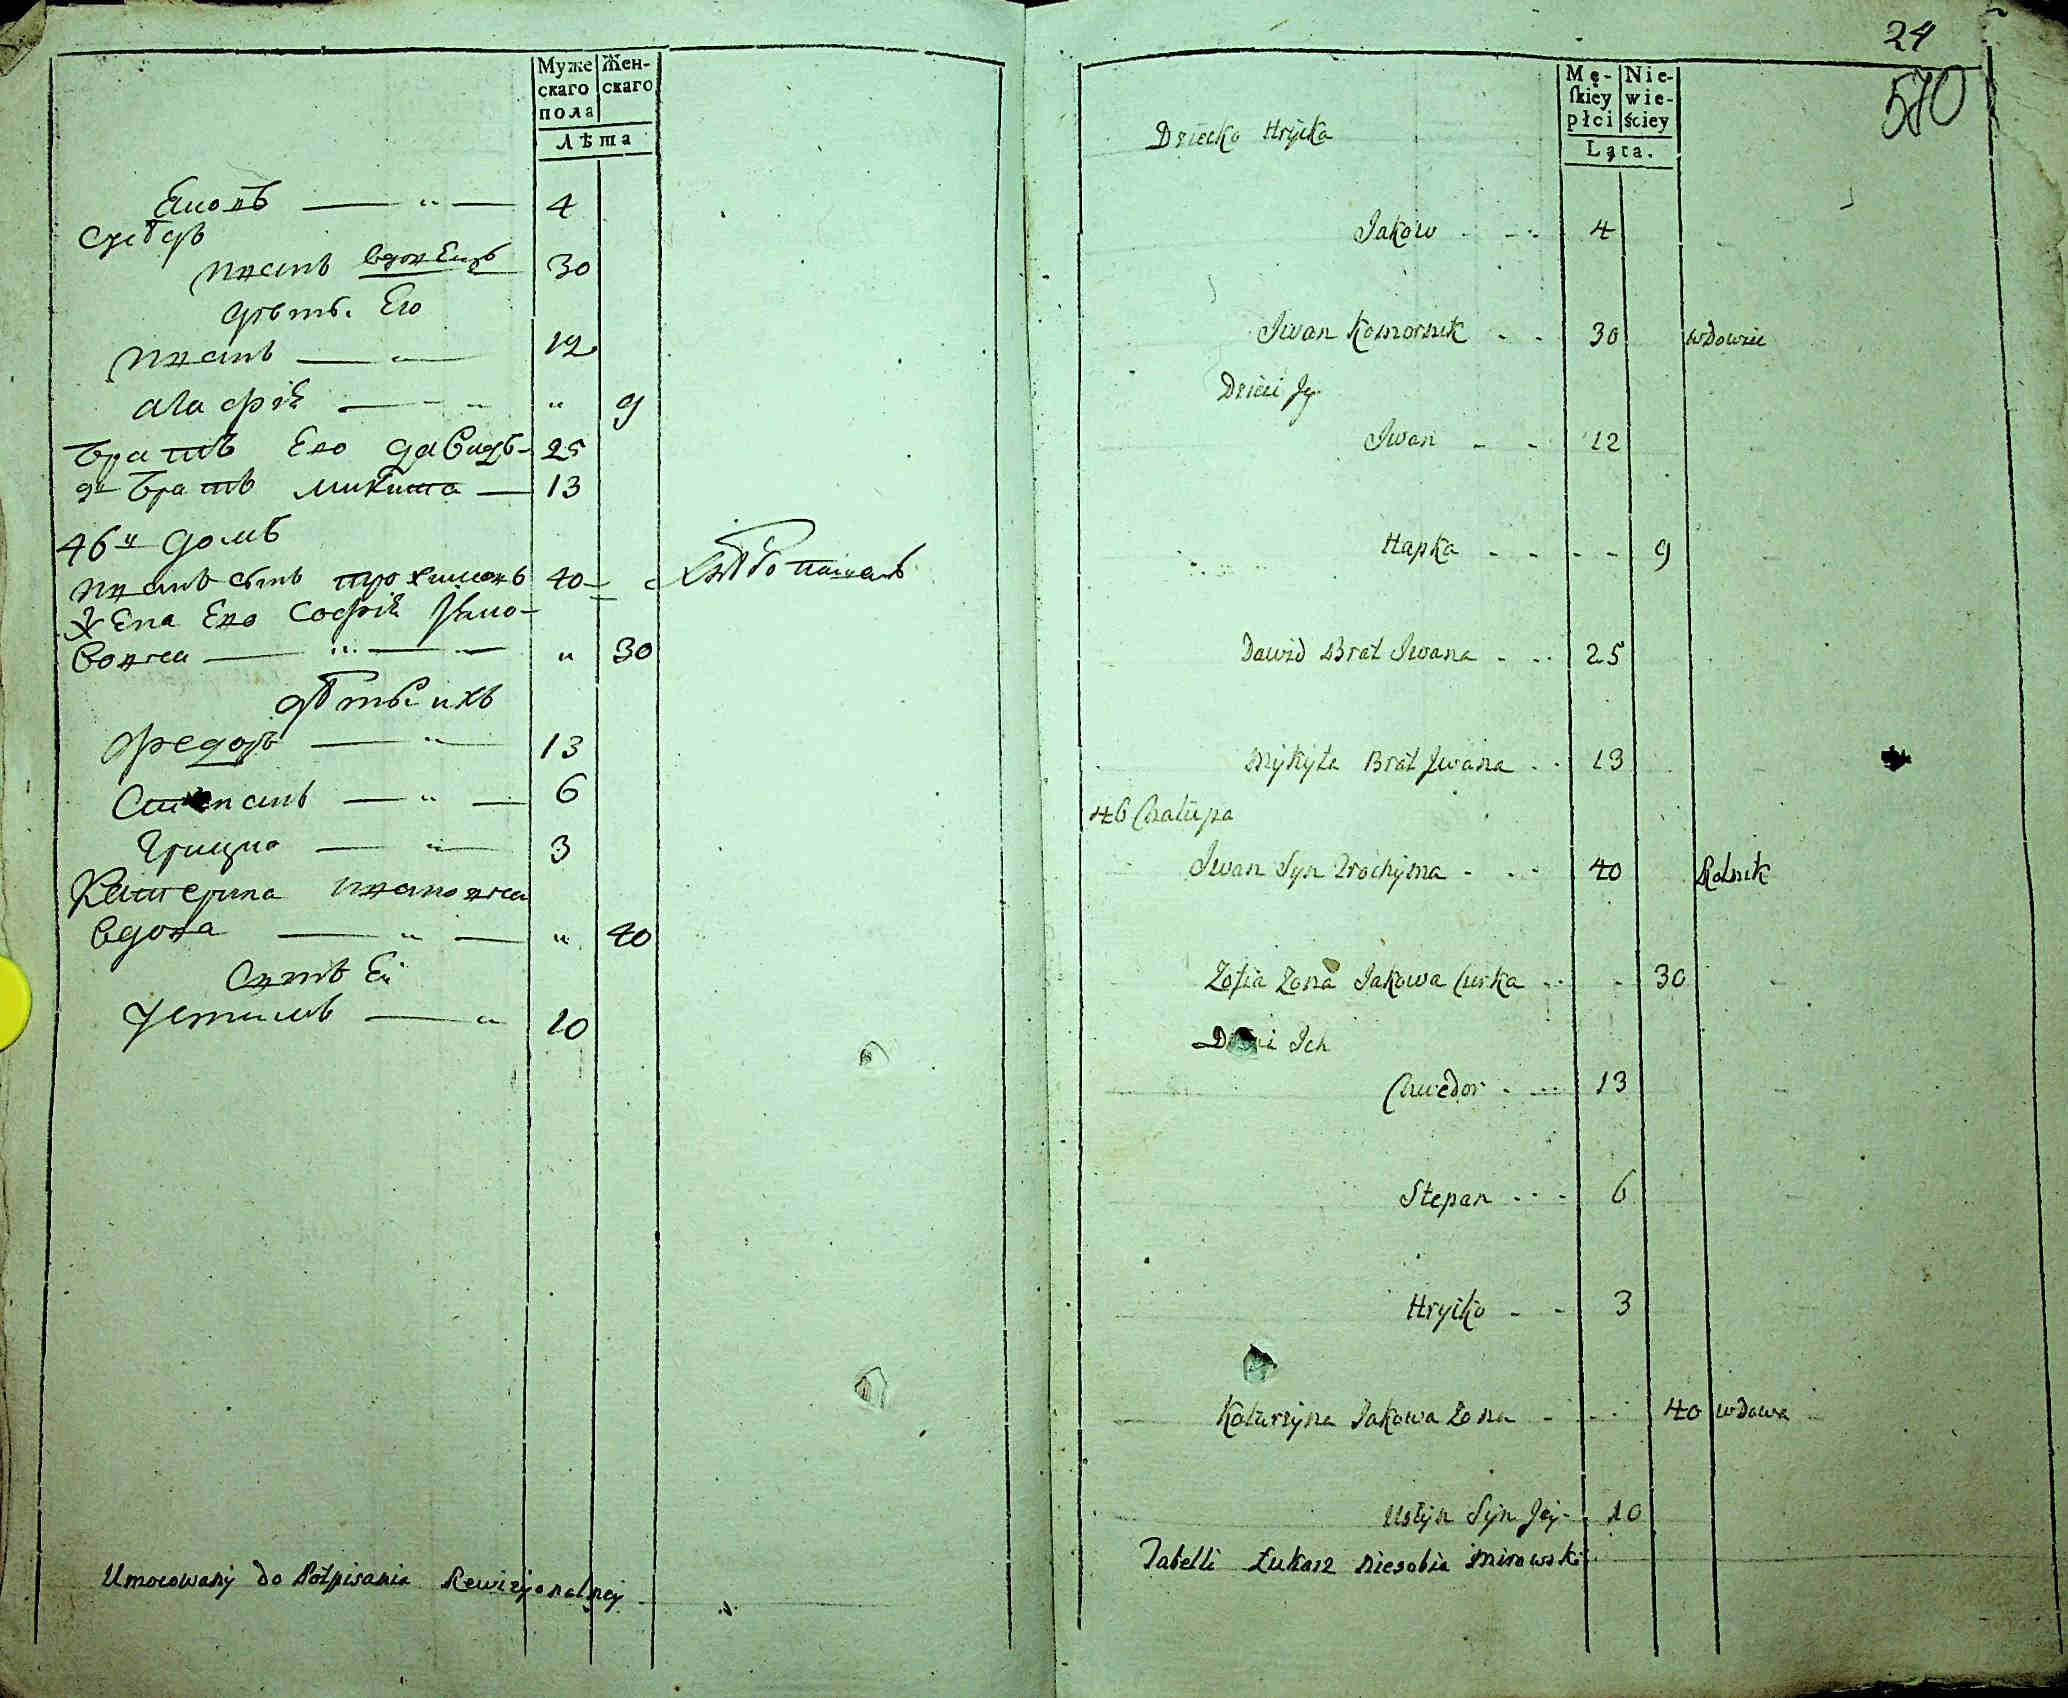 Муже
скаго
пола
Жен-
скаго
Лѣта
Яковъ — „ — 4
Сусѣдъ
иванъ вдовецъ 30
дѣти Его
иванъ — „ — 12
агафія — „ „ 9
братъ Его давидъ - 25
2й братъ микита — 13
46й домъ
иванъ сынъ трохимовъ 40 — хлѣбопашецъ
жена Его Софія Яко-
вовна — „ — „ 30
дѣти ихъ
Федоръ — „ 13
Степанъ — „ — 6
Грицко — „ 3
Катерина
вдова — „ — „ 40
Сынъ Ей
Устимъ — „ 10
Umocowany do Potpisania Rewizyonalney
24
570
Mę-
skiey
płci
Nie-
wie-
ściey
Lata.
Dziecko Hrycka
Jakow - - - 4
Jwan Komornik - - 30 wdowiec
Dzieci Jego
Jwan - - 12
Hapka - - - - 9
Dawid Brat Jwana - - - 25
Mykyta Brat Jwana - - 13
46 Chałupa
Jwan Syn Trochyma - - - 40 Rolnik
Zofia Zona Jakowa Curka - - - 30
Dzieci Ich
Chwedor - - - 13
Stepan - - - 6
Hrycko - - 3
Katarzyna Jakowa Zona - - - 40 wdowa
Ustyn Syn Jey - - 10
Tabelli Łukasz Niesobia Mirowski